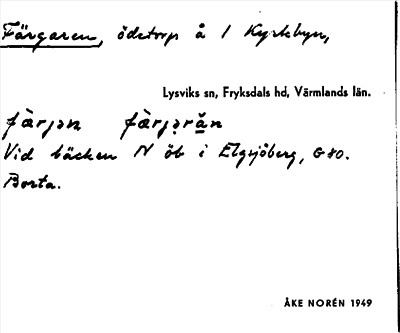 Färgaren, ödetorp å 1 Kyrkebyn,
Lysviks sn, Fryksdals hd, Värmlands län.
Vid bäcken N öb i Elgsjöberg, G 80.
Borta.
ÅKE NORÉN 1949